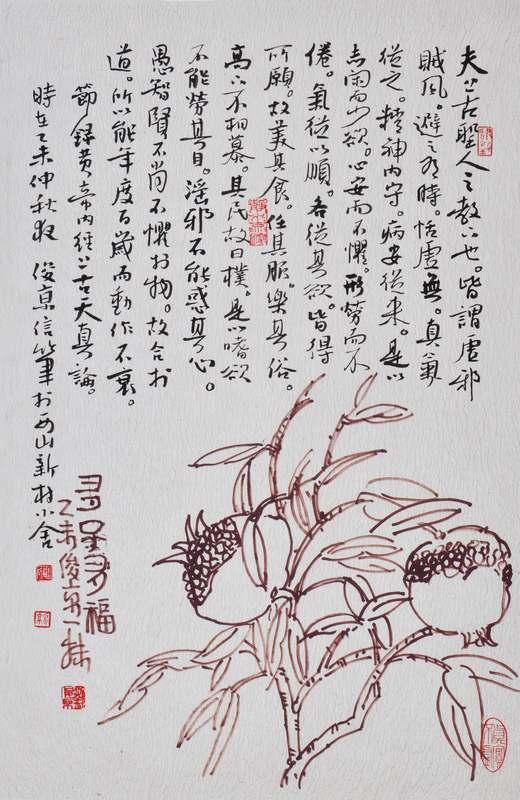 夫上古聖人之教下也。皆謂虛邪
賊風。避之有時。恬虛無。真氣
從之。精神內守。病安從來。是以
志閑而少欲。心安而不懼。形勞而不
倦。氣從以順。各從其欲皆得
所願。故美其食。任其服。樂其俗。
高下不相慕。其民故曰樸。是以嗜欲
不能勞其目。淫邪不能惑其心。
愚智賢不肖不懼於物。故合於
道。所以能年度百歲而動作不衰。
節錄黃帝內經上古天真論。
時在乙未仲秋夜 俊京信筆於西山新村小舍
多子多福
乙未俊京一抹